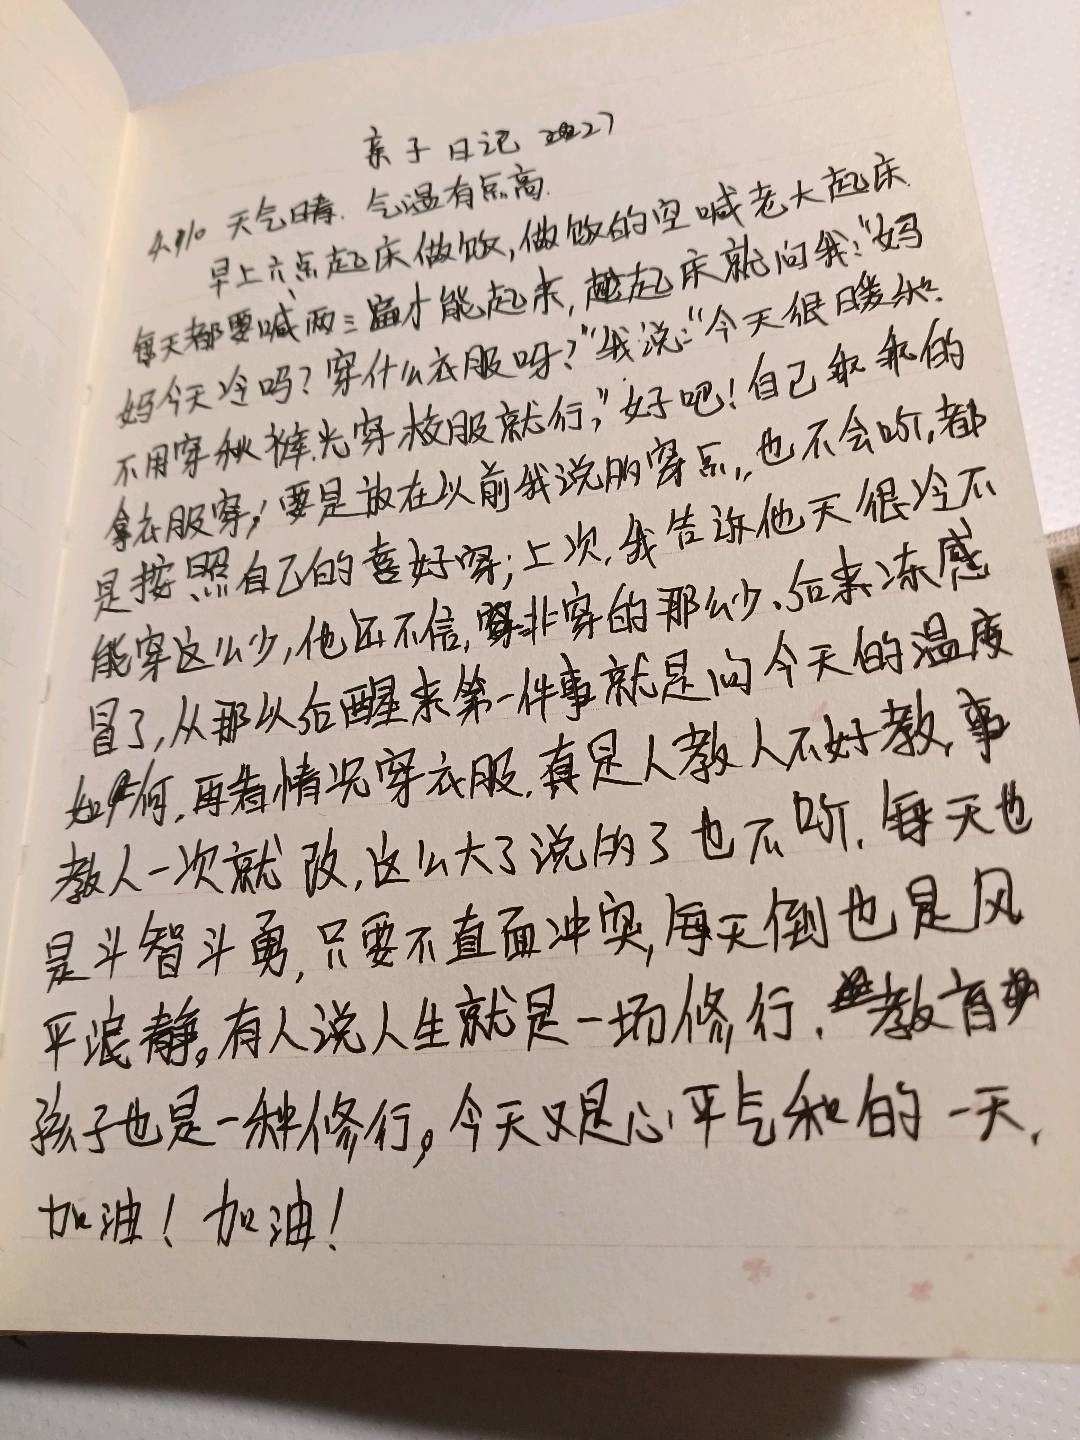 亲子日记
天气晴.气温有点高.
早上六点起床做饭,做饭的空喊老大起床
每天都要喊两三遍才能起来,起床就问我:“妈
妈今天冷吗?穿什么衣服呀?”我说:“今天很暖和.
不用穿秋裤.光穿校服就行,”好吧!自己乖乖的
拿衣服穿,要是放在以前我说的穿点,也不会听,都
是按照自己的喜好穿;上次,我告诉他天很冷不
能穿这么少,他还不信,非穿的那么少、后来冻感
冒了,从那以后醒来第一件事就是问今天的温度
如何,再看情况穿衣服.真是人教人不好教,事
教人一次就改,这么大了说的了也不听.每天也
是斗智斗勇,只要不直面冲突,每天倒也是风
平浪静。有人说人生就是一场修行.教育
孩子也是一种修行。今天又是心平气和的一天.
加油!加油!